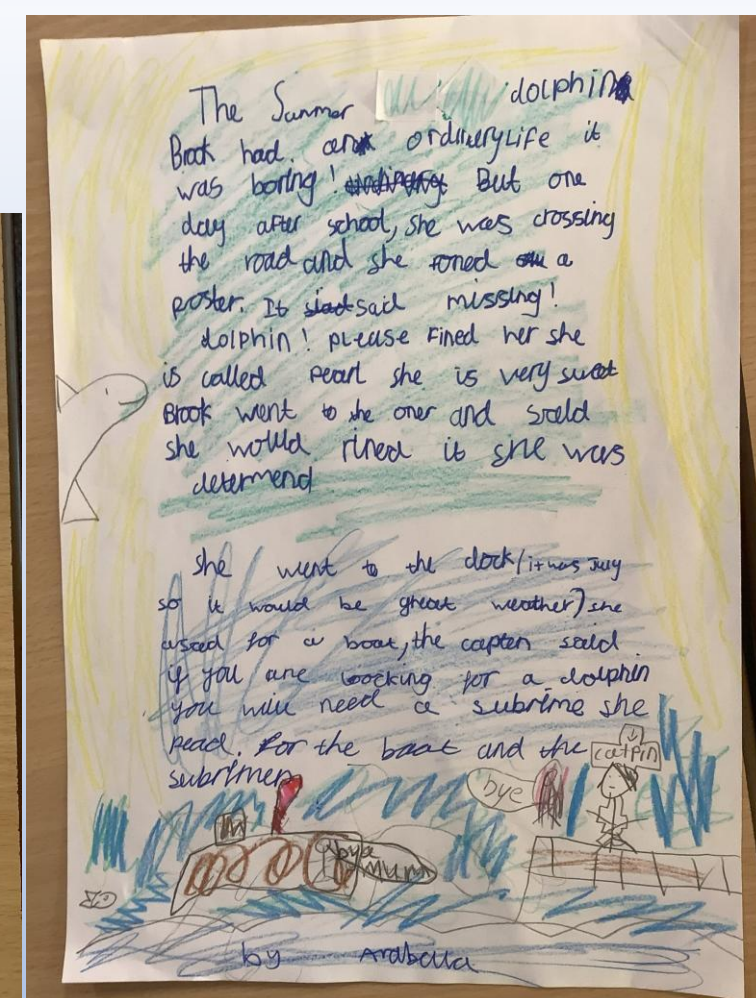 The Summer dolphin
Brook had. an ordinery Life it
was boring! But one
day after school, she was crossing
the road and she foned a
poster. It said missing!
dolphin! please Fined her she
is called pearl she is very sweet
Brook went to the oner and saild
she would fined it she was
determend
She went to the dock (it was July
so it would be great weather) she
asced for a boat, the capten saild
if you are loocking for a dolphin
you will need a subrime she
pead. for the boat and the
subrimer
catpin
bye
bye
mum
by Arabella